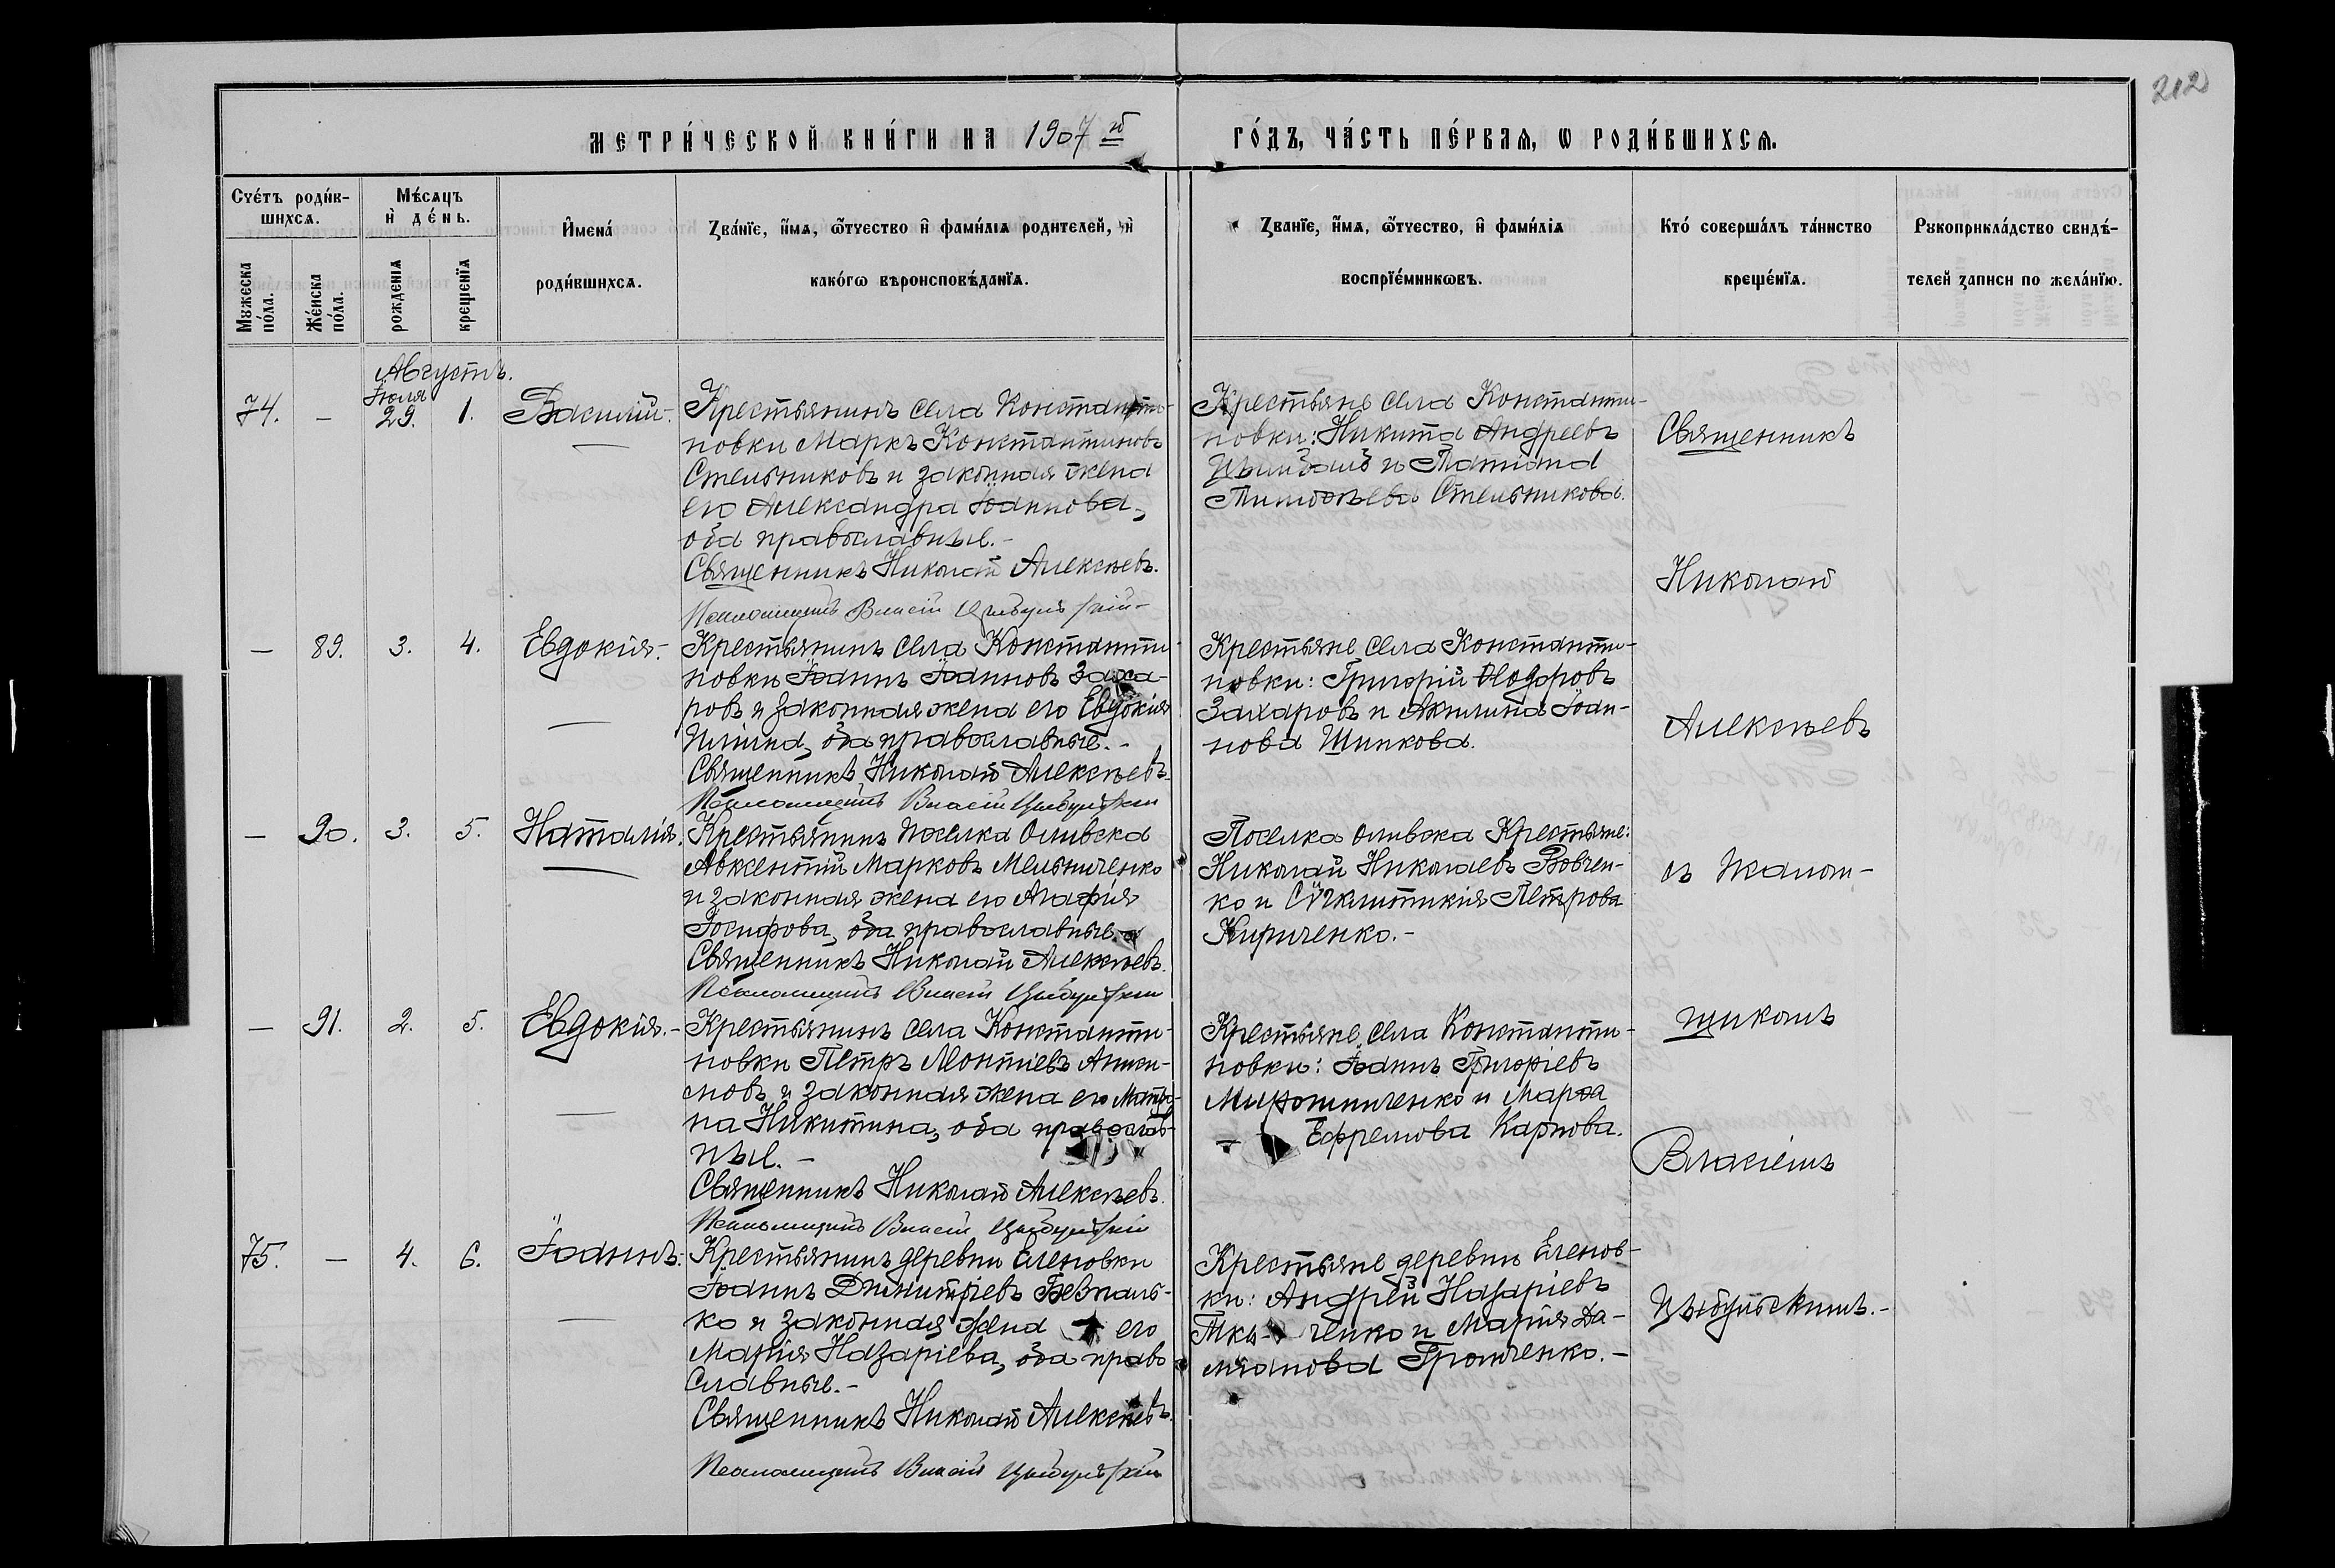 212
МЕТРИ́ЧЕСКОЙ КНИ́ГИ НА 1907 й
ГО́ДЪ, ЧА́СТЬ ПЕ́РВАѦ, Ѡ РОДИ́ВШИХСѦ.
Сче́тъ роди́в-
шихсѧ.
Мꙋ́жеска по́ла.
Же́нска по́ла.
Мѣ́сѧцъ
и҆ де́нь.
рожденїѧ
крещенїѧ
И҆мена́
роди́вшихсѧ.
Зва́нїе, и҆́мѧ, ѻ҆́тчество и҆ фами́лїѧ родителей, и҆
како́гѡ вѣроисповѣ́данїѧ.
Званїе, и҆́мѧ, ѻ҆́тчество, и҆ фами́лїѧ
воспрїе́мникѡвъ.
Кто́ соверша́лъ та́инство
креще́нїѧ.
Рꙋкоприкла́дство свидѣ́-
телей записи по жела́нїю.
Августъ.
74. – Іюля 29. 1. Василій.
Крестьянинъ села Константи-
новки Маркъ Константиновъ
Стельниковъ и законная жена
его Александра Іоаннова,
оба православные.-
Священникъ Николай Алексѣевъ.
Псаломщикъ Власій Цыбульскій
Крестьяне села Константи-
новки: Никита Андреевъ
и Татіана
Тимоѳеева Стельникова.
– 89. 3. 4. Евдокія.
Крестьянинъ села Константи-
новки Іоаннъ Іоанновъ Заха-
ровъ и законная жена его Евдокія
Иліина, оба православные.-
Священникъ Николай Алексѣевъ.
Псаломщикъ Власій Цыбульскій
Крестьяне села Константи-
новки: Григорій Ѳеодоровъ
Захаровъ и Акилина Іоан-
нова Шипкова.
– 90. 3. 5. Наталія.
Крестьянинъ поселка Оливска
Авксентій Марковъ Мельниченко
и законная жена его Агафія
Іосифова, оба православные
Священникъ Николай Алексѣевъ.
Псаломщикъ Власій Цыбульскій
Поселка Оливска Крестьяне:
Николай Николаевъ Вовчен-
ко и Сѵнклитикія Петрова
Кириченко.-
– 91. 2. 5. Евдокія.-
Крестьянинъ села Константи-
новки Петръ Леонтіевъ Аниси-
мовъ и законная жена его Матро-
на Никитина, оба православ-
ные.-
Священникъ Николай Алексѣевъ.
Псаломщикъ Власій Цыбульскій
Крестьяне села Константи-
новки: Іоаннъ Григоріевъ
Мирошниченко и Марѳа
Ефремова Карпова.
75. – 4. 6. Іоаннъ.
Крестьянинъ деревни Еленовки
Іоаннъ Димитріевъ Безпаль-
ко и законная жена его
Марія Назаріева, оба право
славные.-
Священникъ Николай Алексѣевъ.
Псаломщикъ Власій Цыбульскій
Крестьяне деревни Еленов-
ки: Андрей Назаріевъ
Тка- ченко и Марія Да-
міанова Громченко.-
Священникъ
Николай
Алексѣевъ
съ псалом-
щикомъ
Власіемъ
Цыбульскимъ.-